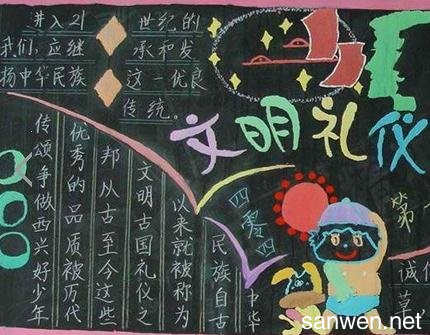 进入21世纪的
我们,应继承和发
扬中华民族这一优良
传统。
文明礼仪
四零四
中华
民族自古
以来就被称为
文明古国礼仪之
邦从古至今这些
优秀的品质被历代
传颂争做西兴好少年
第
诚
sanwen.net